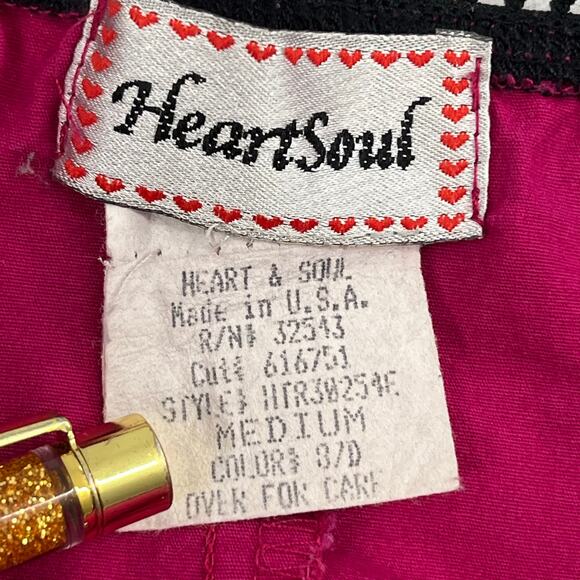 HeartSoul
HEART & SOUL
Made in U.S.A.
R/N# 32543
Cut# 616751
STYLE# HTR30254E
MEDIUM
COLOR# 8/D
OVER FOR CARE